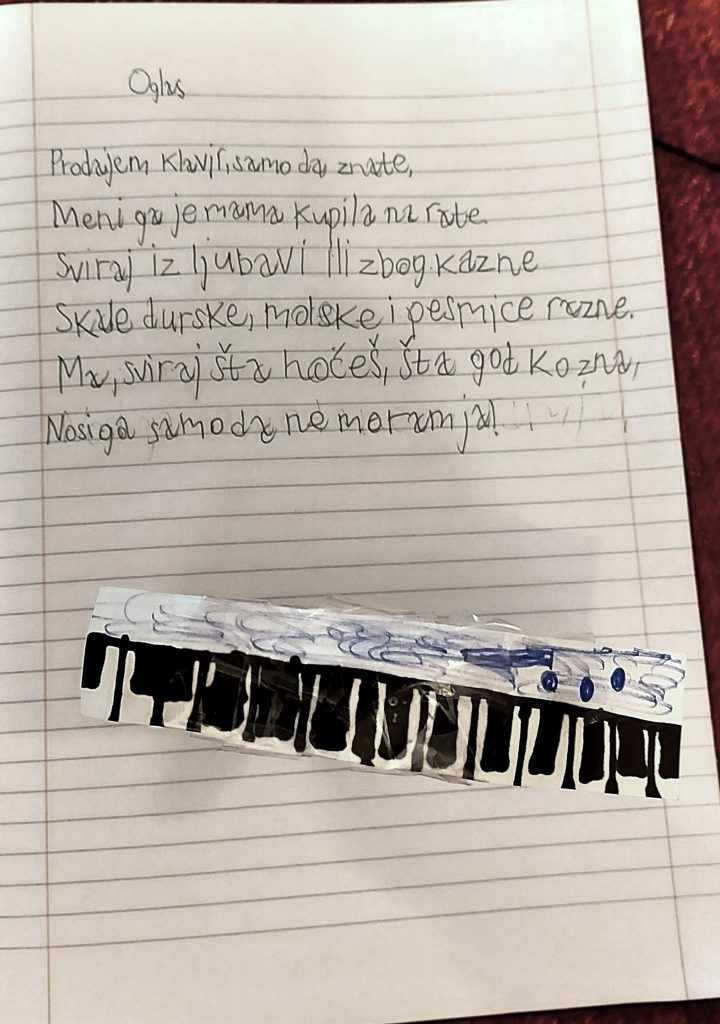 Oglas
Prodajem klavir, samo da znate,
Meni ga je mama kupila na rate.
Sviraj iz ljubavi ili zbog kazne
Skale durske, molske i pesmice razne.
Ma, sviraj šta hoćeš, šta god ko zna,
Nosi ga samo da ne moram ja!